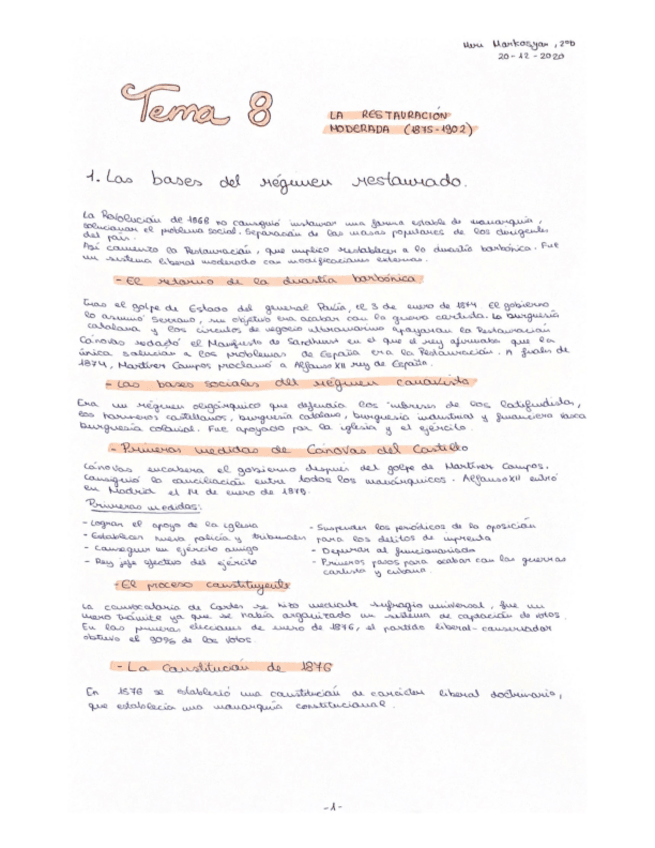 Meri Markosyan, 2ºD
20-12-2020
Tema 8
LA RESTAURACIÓN
MODERADA (1875-1902)
1. Las bases del régimen restaurado.
La Revolución de 1868 no consiguió instaurar una forma estable de monarquía,
solucionar el problema social. Separación de las masas populares de los dirigentes
del país.
Así comenzó la Restauración, que implicó restablecer a la dinastía borbónica. Fue
un sistema liberal moderado con modificaciones externas.
- El retorno de la dinastía borbónica
Tras el golpe de Estado del general Pavía, el 3 de enero de 1874 el gobierno
lo asumió Serrano, su objetivo era acabar con la guerra carlista. La burguesía
catalana y los círculos de negocio ultramarino apoyaron la Restauración
Cánovas redactó el Manifiesto de Sandhurst en el que el rey afirmaba que la
única solución a los problemas de España era la Restauración. A finales de
1874, Martínez Campos proclamó a Alfonso XII rey de España.
- Las bases sociales del régimen canovista
Era un régimen oligárquico que defendía los intereses de los latifundistas,
los harineros castellanos, burguesía catalana, burguesía industrial y financiera vasca
burguesía colonial. Fue apoyado por la iglesia y el ejército.
- Primeras medidas de Cánovas del Castillo
Cánovas encabeza el gobierno después del golpe de Martínez Campos.
Consiguió la conciliación entre todos los monárquicos. Alfonso XII entró
en Madrid el 14 de enero de 1875.
Primeras medidas:
- Lograr el apoyo de la iglesia
- Establecer nueva policía y tribunales para los delitos de imprenta
- Conseguir un ejército amigo
- Rey jefe efectivo del ejército
- Suspender los periódicos de la oposición
- Depurar al funcionariado
- Primeros pasos para acabar con las guerras
carlista y cubana.
- El proceso constituyente
La convocatoria de Cortes se hizo mediante sufragio universal, fue un
mero trámite ya que se había organizado un sistema de captación de votos.
En las primeras elecciones de enero de 1876, el partido liberal-conservador
obtuvo el 90% de los votos.
- La Constitución de 1876
En 1876 se estableció una constitución de carácter liberal doctrinario,
que establecía una monarquía constitucional.
-1-